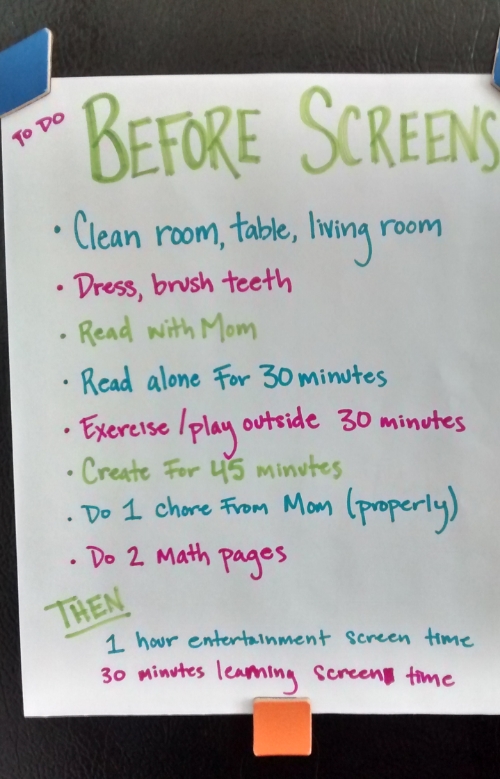 TO DO
BEFORE SCREENS
• Clean room, table, living room
• Dress, brush teeth
• Read with Mom
• Read alone For 30 minutes
• Exercise/play outside 30 minutes
• Create For 45 minutes
• Do 1 chore From Mom (properly)
• Do 2 Math pages
THEN
1 hour entertainment screen time
30 minutes learning screen time